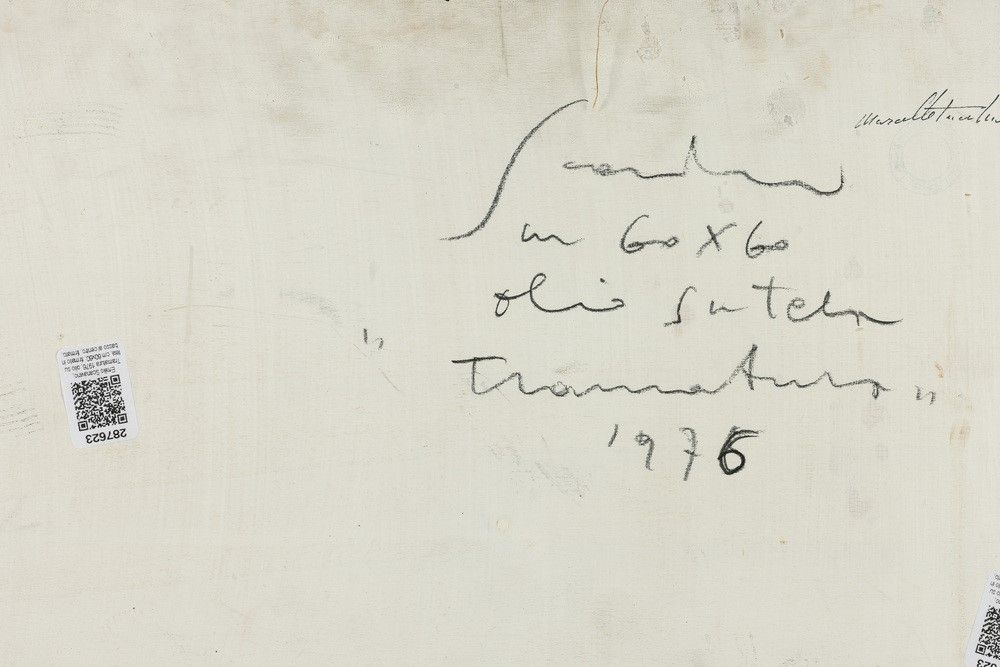 Scanavino
cm 60 x 60
olio su tela
"Tramatura"
1976
Emilio Scanavino,
Tramatura 1976 olio su
tela cm 60x60. firmato in
basso al centro. firmato,
287623